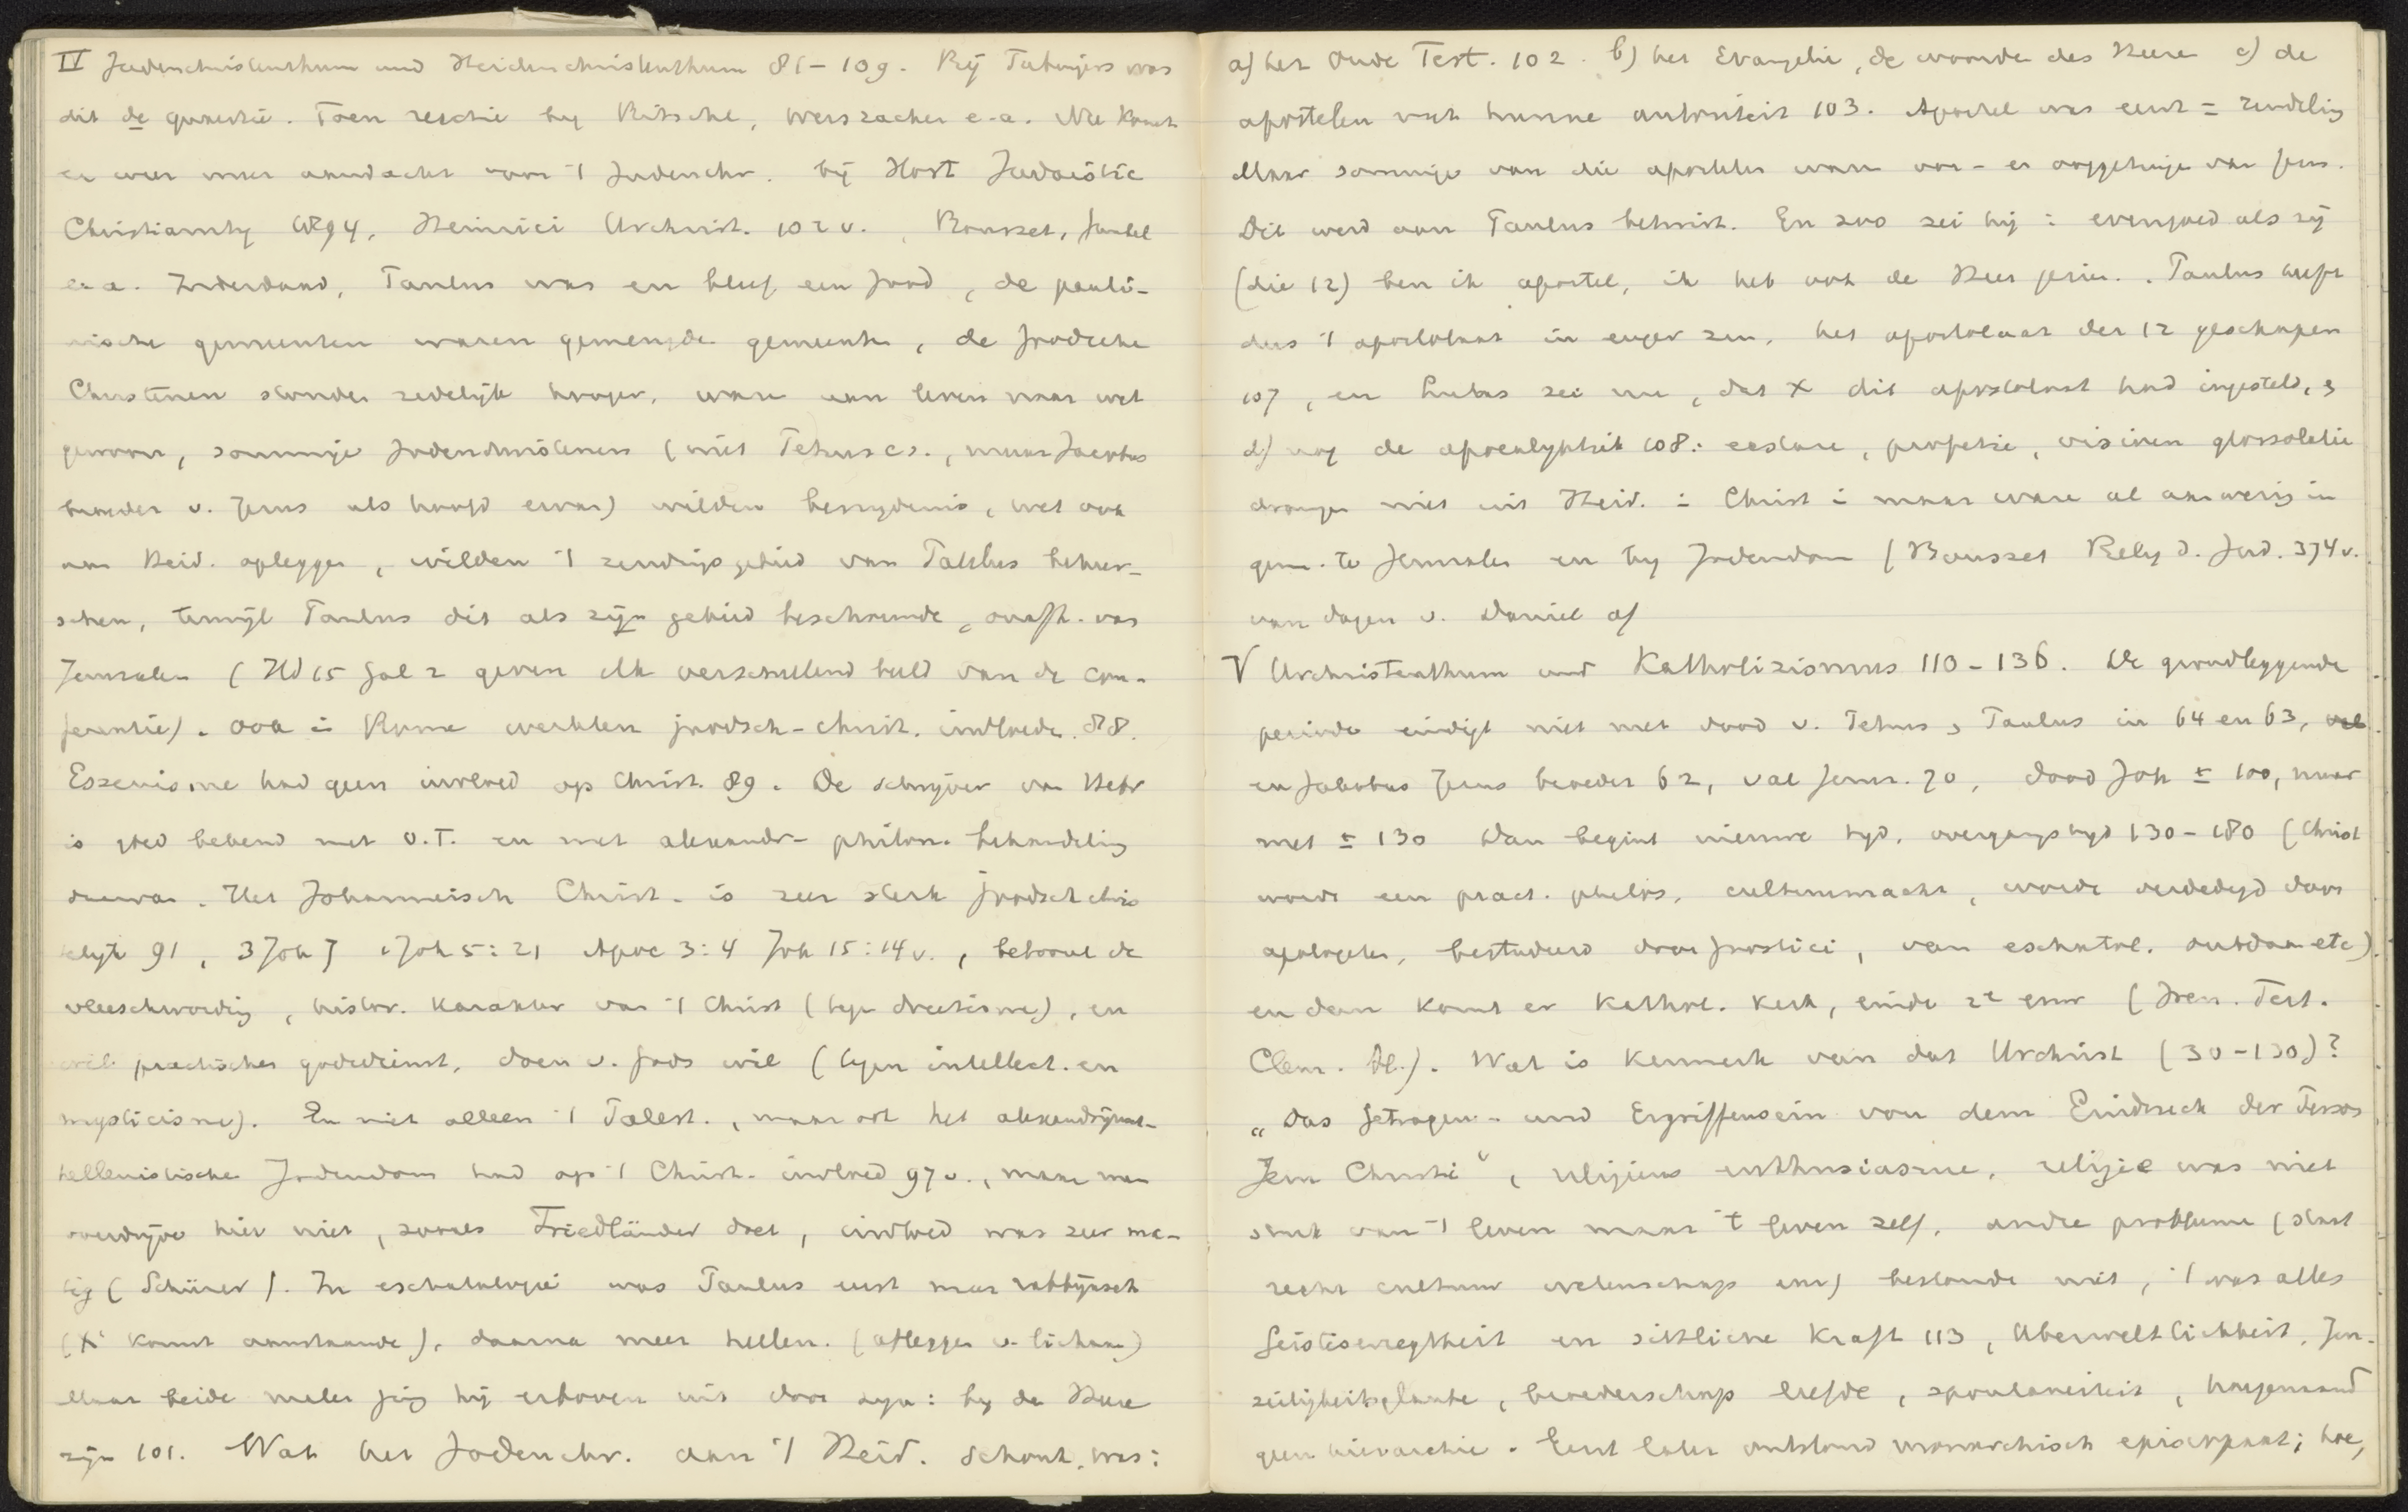 IV Judenchristenthum und Heidenchristenthum 81-109. Bij Tubingers was
dit de quaestie. Toen reactie by Ritschl, Weiszacker e.a. Nu komt
er weer meer aandacht voor 't Judenchr. bij Hort Judaistic
Christianity 1894, Heinrici Urchrist. 102 v., Bousset,
e.a. Inderdaad, Paulus was en bleef een Jood, de pauli-
nische gemeenten waren gemengde gemeenten, de Joodsche
Christenen stonden zedelijk hooger, waren aan leven naar wet
gewoon, sommige Jodenchristenen (niet Petrus cs., maar Jacobus
broeder v. Jezus als hoofd ervan) wilden besnydenis, wet ook
aan Heid. opleggen, wilden 't zendingsgebied van Paulus beheer-
schen, terwijl Paulus dit als zijn gebied beschouwde, onafh. van
Jeruzalem (Hd 15 Gal 2 geven elk verschillend beeld van de con-
ferentie). Ook in Rome werkten joodsch-christ. invloeden 88.
Essenisme had geen invloed op Christ. 89. De schrijver van Hebr
is goed bekend met O.T. en met alexandr- philon. behandeling
daarvan. Het Johanneisch Christ. is zeer sterk joodschchris
telijk 91, 3 Joh 7 1 Joh 5:21 Apoc 3:4 Joh 15:14 v., betoont de
vleeschwording, histor. karakter van 't Christ (tegen docetisme), en
wil practischen godsdienst, doen v. Gods wil (tegen intellect. en
mysticisme). En niet alleen 't Palest., maar ook het alexandrijnsch-
hellenistische Jodendom had op 't Christ. invloed 97 v., maar men
overdrijve hier niet, zooals Friedländer doet, invloed was zeer ma-
tig (Schürer). In eschatologie was Paulus eerst meer rabbijnsch
(X komt aanstaande), daarna meer hellen. (afleggen v. lichaam)
Maar beide malen ging hij erboven uit door zijn: by den Heere
zijn 101. Wat het Jodenchr. aan 't Heid. schonk, was:
a) het Oude Test. 102. b) het Evangelie, de woorden des Heeren c) de
apostelen met hunne autoriteit 103. Apostel was eerst = zendeling
Maar sommige van die apostelen waren oor- en ooggetuige van Jezus.
Dit werd aan Paulus betwist. En zoo zei hij: evengoed als zij
(die 12) ben ik apostel, ik heb ook de Heer gezien. Paulus heeft
dus 't apostolaat in enger zin, het apostolaat der 12 geschapen
107, en Lukas zei nu, dat X dit apostolaat had ingesteld, &
d) nog de apocalyptiek 108: extase, profetie, visioenen glossolalie
drongen niet uit Heid. in Christ in maar waren al aanwezig in
gem. te Jeruzalem en by Jodendom (Bousset Relig d. Jud. 374 v.
van dagen v. Daniel af
V Urchristenthum und Katholizismus 110-136. De grondleggende
periode eindigt niet met dood v. Petrus & Paulus in 64 en 63,
en Jakobus Jezus broeder 62, val Jeruz. 70, dood Joh ± 100, maar
met ± 130 Dan begint nieuwe tijd, overgangstyd 130-180 (Christ
wordt een pract. philos, cultuurmacht, wordt verdedigd door
apologeten, bestudeerd door gnostici, van eschatol. ontdaan etc)
en dan komt er Kathol. Kerk, einde 2e eeuw (Iren. Tert.
Clem. Al.). Wat is kenmerk van dat Urchrist (30-130)?
„Das Getragen- und Ergriffensein von dem Eindruck der Person
Jesu Christi“, religieus enthusiasme, religie was niet
stuk van 't leven maar 't leven zelf, andere problemen (staat
recht cultuur wetenschap enz) bestonden niet, 't was alles
Geisteserregtheit en sittliche Kraft 113, Uberweltlichkeit, Jen-
seitigheitsglaube, broederschap liefde, spontaneiteit,
geen hierarchie. Eerst later ontstond monarchisch episcopaat; hoe,